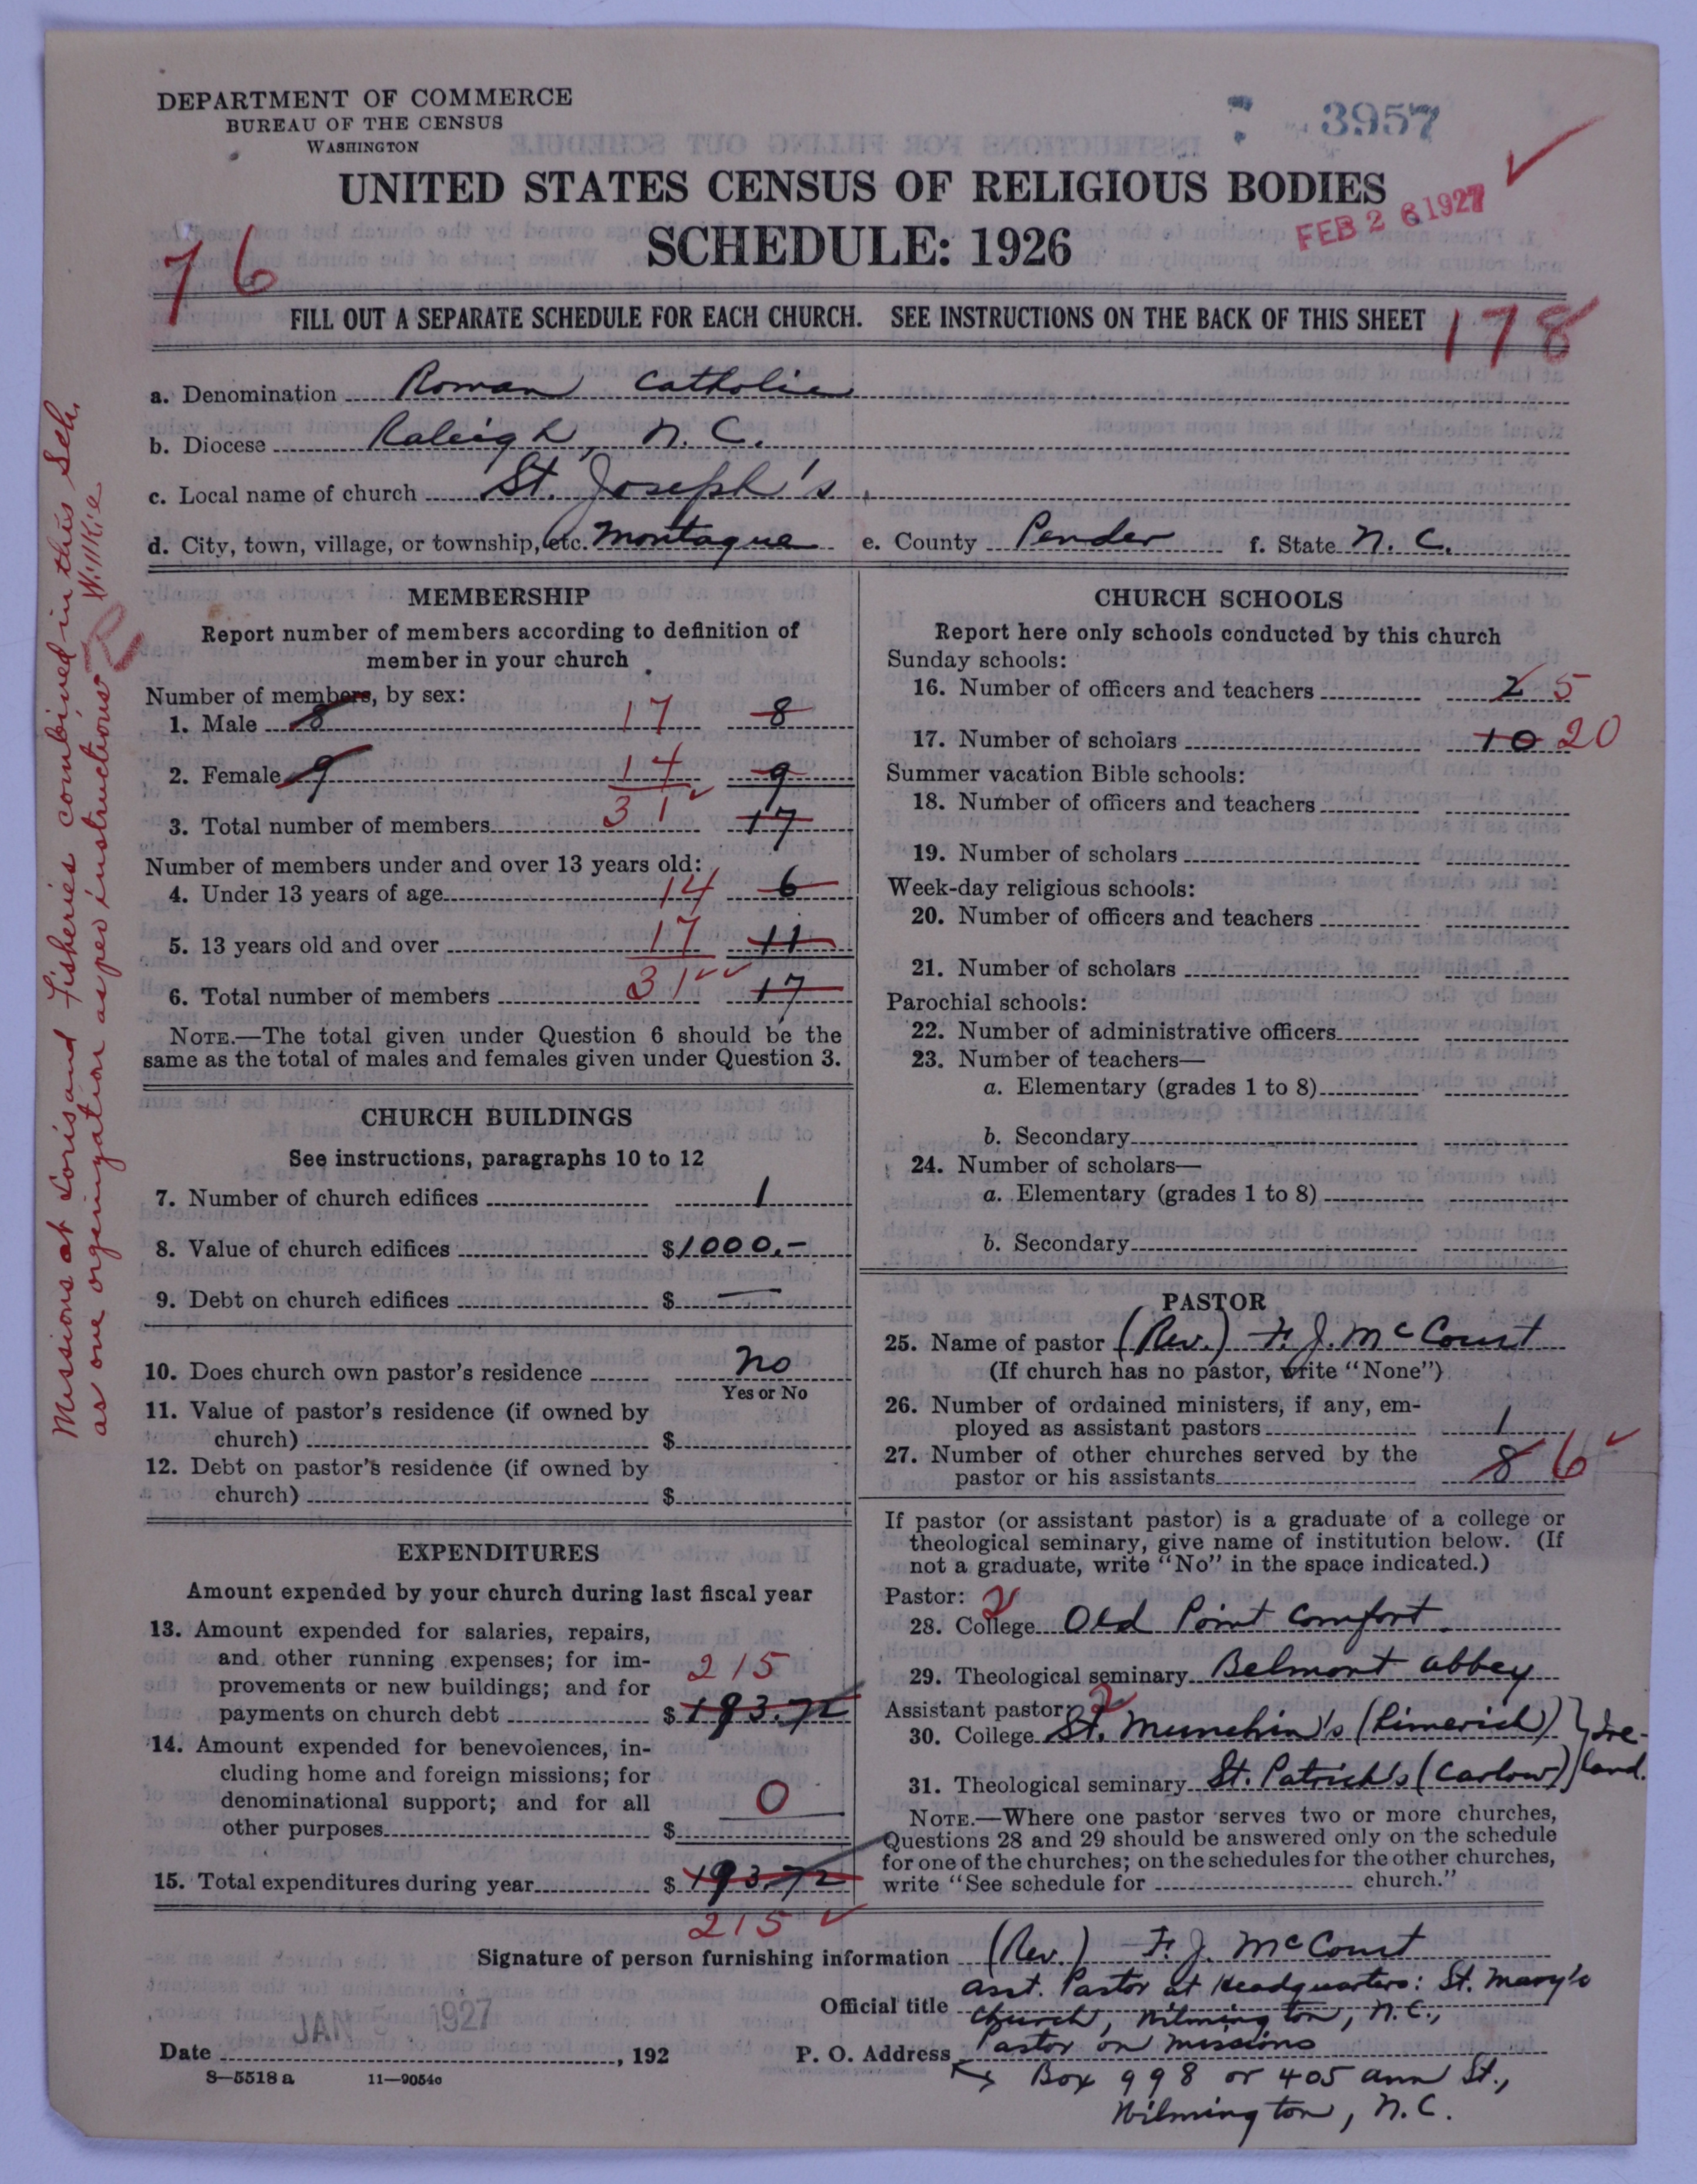 DEPARTMENT OF COMMERCE
BUREAU OF THE CENSUS
WASHINGTON
3957
UNITED STATES CENSUS OF RELIGIOUS BODIES
SCHEDULE: 1926
FEB 26 1927
76
FILL OUT A SEPARATE SCHEDULE FOR EACH CHURCH. SEE INSTRUCTIONS ON THE BACK OF THIS SHEET
178
a. Denomination Roman Catholic
b. Diocese Raleigh, N. C.
c. Local name of church St. Joseph's
d. City, town, village, or township, etc. Montague e. County Pender f. State N. C.
Missions at Loris and Fisheries combined in this Sch.
as one organization as per instructions Willkie
MEMBERSHIP
Report number of members according to definition of
member in your church
Number of members, by sex:
1. Male 8 17 8
2. Female 9 14 9
3. Total number of members 31 17
Number of members under and over 13 years old:
4. Under 13 years of age 14 6
5. 13 years old and over 17 11
6. Total number of members 31 17
NOTE.—The total given under Question 6 should be the
same as the total of males and females given under Question 3.
CHURCH BUILDINGS
See instructions, paragraphs 10 to 12
7. Number of church edifices 1
8. Value of church edifices $1000.-
9. Debt on church edifices $ —
10. Does church own pastor's residence no
Yes or No
11. Value of pastor's residence (if owned by
church) $
12. Debt on pastor's residence (if owned by
church) $
EXPENDITURES
Amount expended by your church during last fiscal year
13. Amount expended for salaries, repairs,
and other running expenses; for im-
provements or new buildings; and for 215
payments on church debt $193.72
14. Amount expended for benevolences, in-
cluding home and foreign missions; for
denominational support; and for all 0
other purposes $
15. Total expenditures during year $193.72
215
CHURCH SCHOOLS
Report here only schools conducted by this church
Sunday schools:
16. Number of officers and teachers 2 5
17. Number of scholars 10 20
Summer vacation Bible schools:
18. Number of officers and teachers
19. Number of scholars
Week-day religious schools:
20. Number of officers and teachers
21. Number of scholars
Parochial schools:
22. Number of administrative officers
23. Number of teachers—
a. Elementary (grades 1 to 8)
b. Secondary
24. Number of scholars—
a. Elementary (grades 1 to 8)
b. Secondary
PASTOR
25. Name of pastor (Rev.) F. J. McCourt
(If church has no pastor, write "None")
26. Number of ordained ministers, if any, em-
ployed as assistant pastors 1
27. Number of other churches served by the
pastor or his assistants 8 6
If pastor (or assistant pastor) is a graduate of a college or
theological seminary, give name of institution below. (If
not a graduate, write "No" in the space indicated.)
Pastor: 2
28. College Old Point Comfort
29. Theological seminary Belmont Abbey
Assistant pastor: 2
30. College St. Munchin's (Limerick) } Ire-
31. Theological seminary St. Patrick's (Carlow) land.
NOTE.—Where one pastor serves two or more churches,
Questions 28 and 29 should be answered only on the schedule
for one of the churches; on the schedules for the other churches,
write "See schedule for church."
Signature of person furnishing information (Rev.) F. J. McCourt
Official title Asst. Pastor at Headquarters: St. Mary's
Church, Wilmington, N. C.,
JAN 1927
Date , 192
P. O. Address Pastor on Missions
Box 998 or 405 Ann St.,
Wilmington, N. C.
8—5518 a 11—9054c